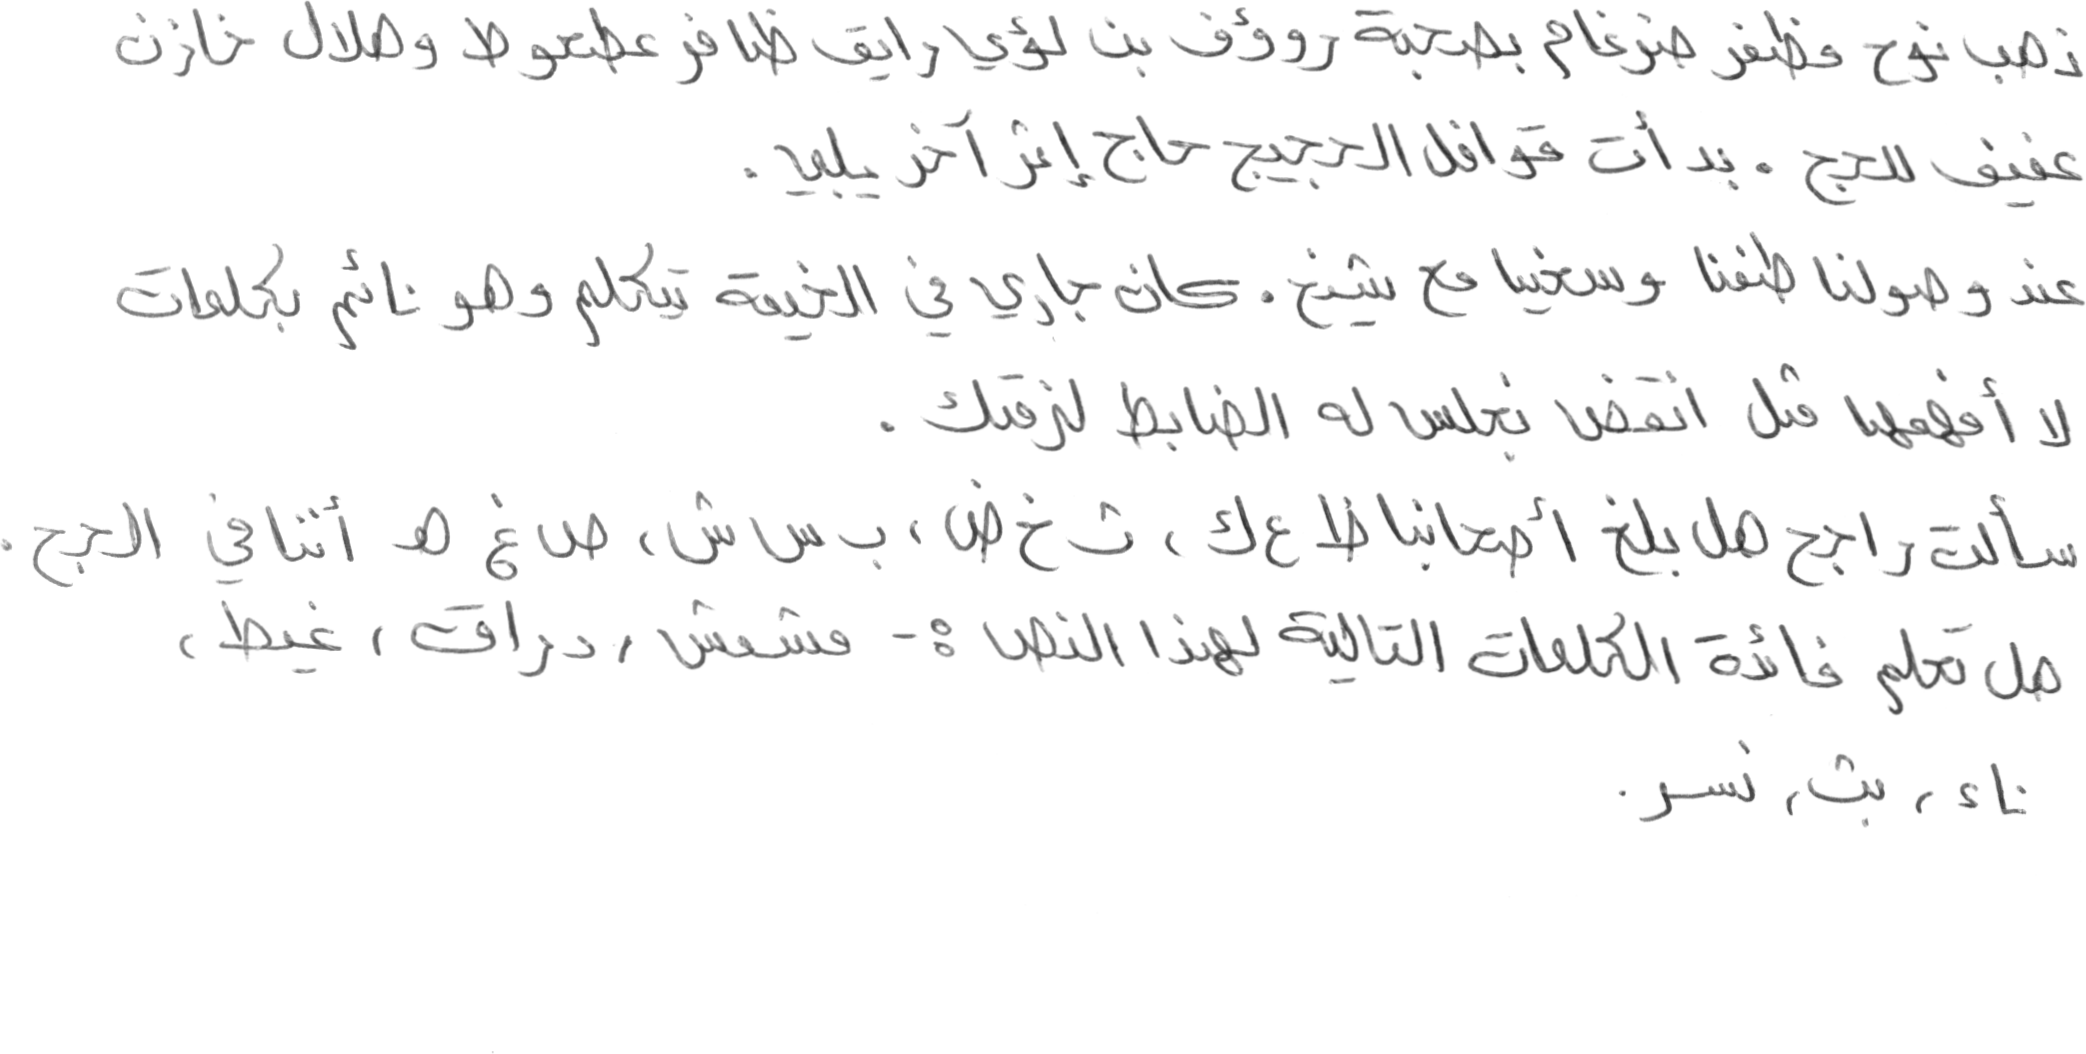 ذهب نوح مظفر ضرغام بصحبة رووؤف بن لؤي رايق ظافر عطعوط وهلال خازن
عفيف للحج . بدأت قوافل الحجيج حاج إثر آخر يلبي .
عند وصولنا طفنا وسعينا مع شيخ . كان جاري في الخيمة يتكلم وهو نائم بكلمات
لا أفهمها مثل انقض نجلس له الضابط لنزقتك .
سألت راجح هل بلغ أصحابنا ظ ع ك ، ث خ ض ، ب س ش ، ص غ هـ أننا في الحج .
هل تعلم فائدة الكلمات التالية لهذا النص :- مشمش ، دراق ، غيط ،
ناء ، بث ، نسر .